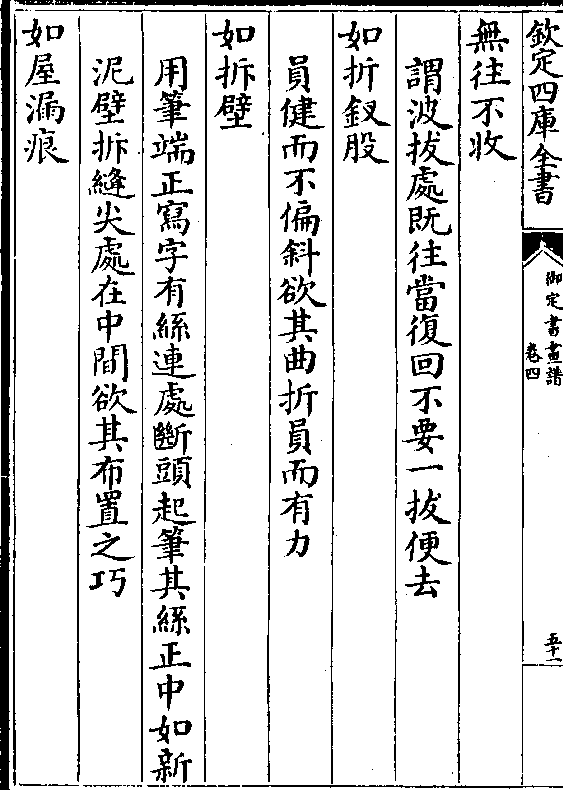 欽定四庫全書
御定書畫譜
卷四
五十一
無往不收
謂波拔處既往當復回不要一拔便去
如折釵股
員健而不偏斜欲其曲折員而有力
如拆壁
用筆端正寫字有絲連處斷頭起筆其絲正中如新
泥壁拆縫尖處在中間欲其布置之巧
如屋漏痕